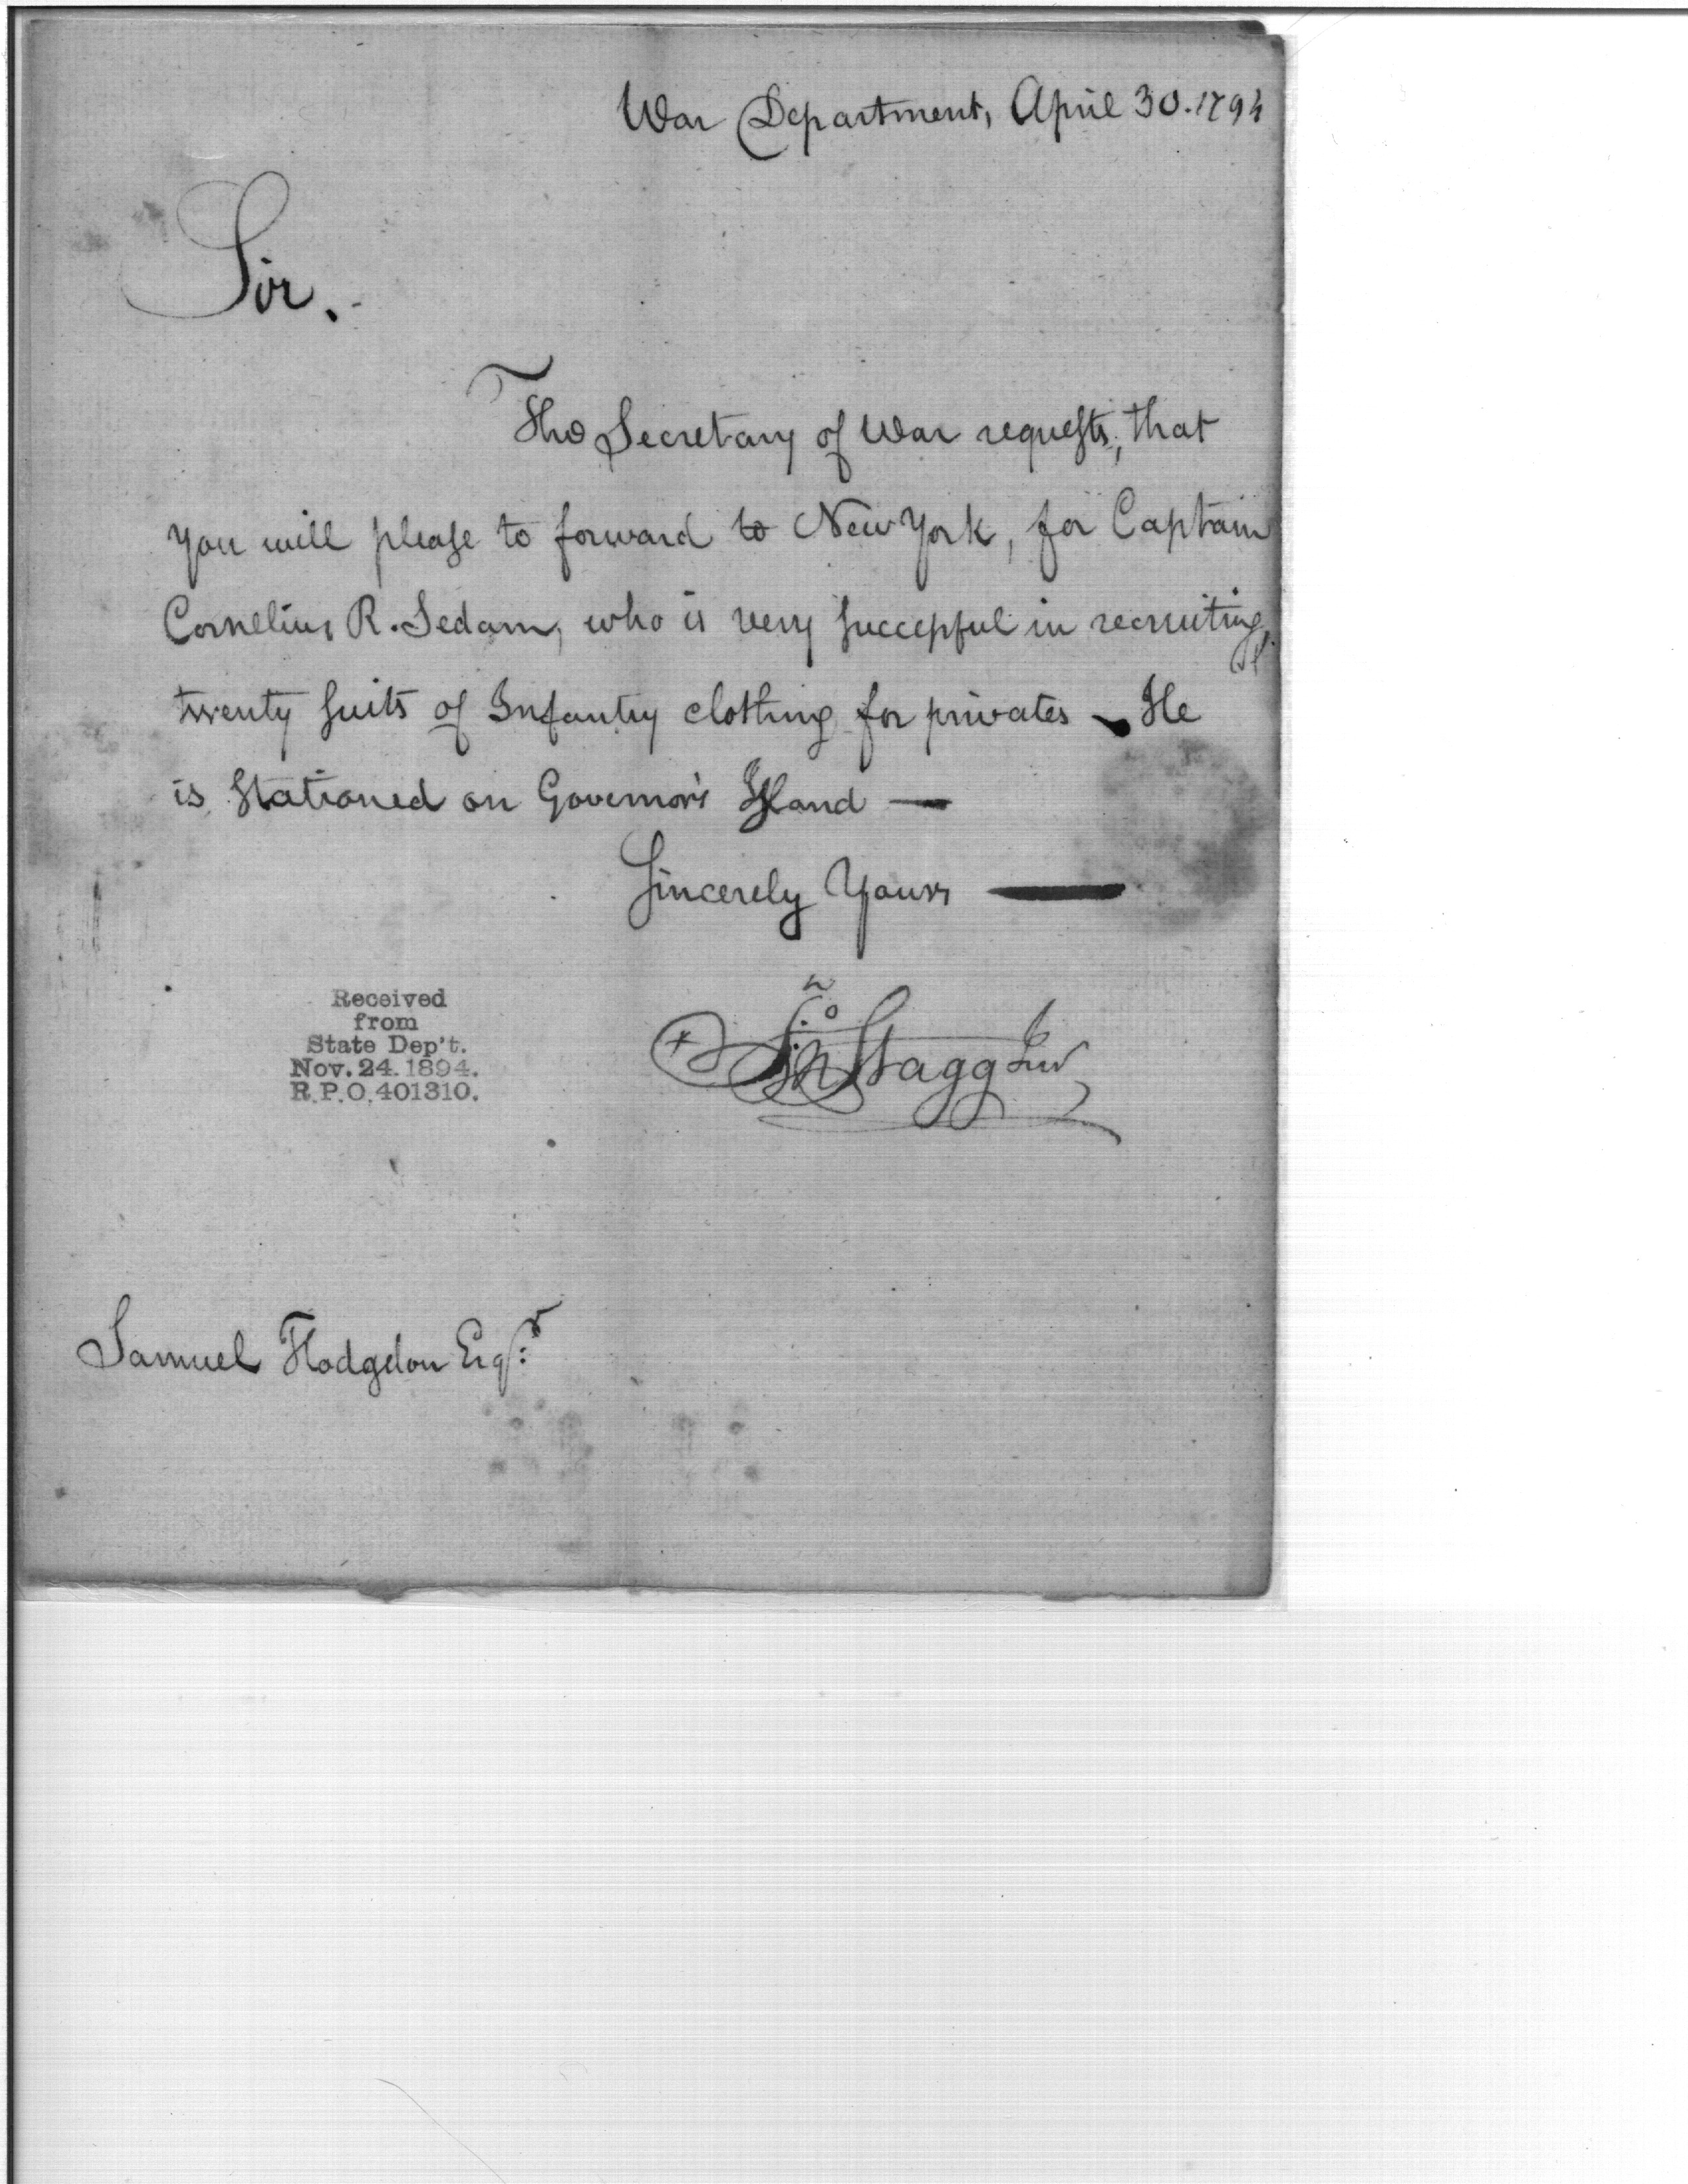 War Department, April 30. 1794
Sir.
The Secretary of War requests, that
you will please to forward to New York, for Captain
Cornelius R. Sedam, who is very successful in recruiting,
twenty suits of Infantry clothing for privates — He
is stationed on Governor's Island —
Sincerely Yours —
Jno Stagg Junr
Received
from
State Dep't.
Nov. 24. 1894.
R.P.O. 401310.
Samuel Hodgdon Esqr: